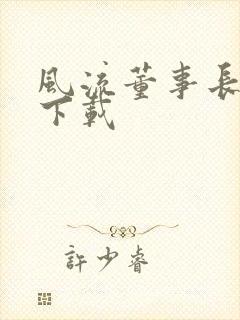 風流董事長
下載
許少睿